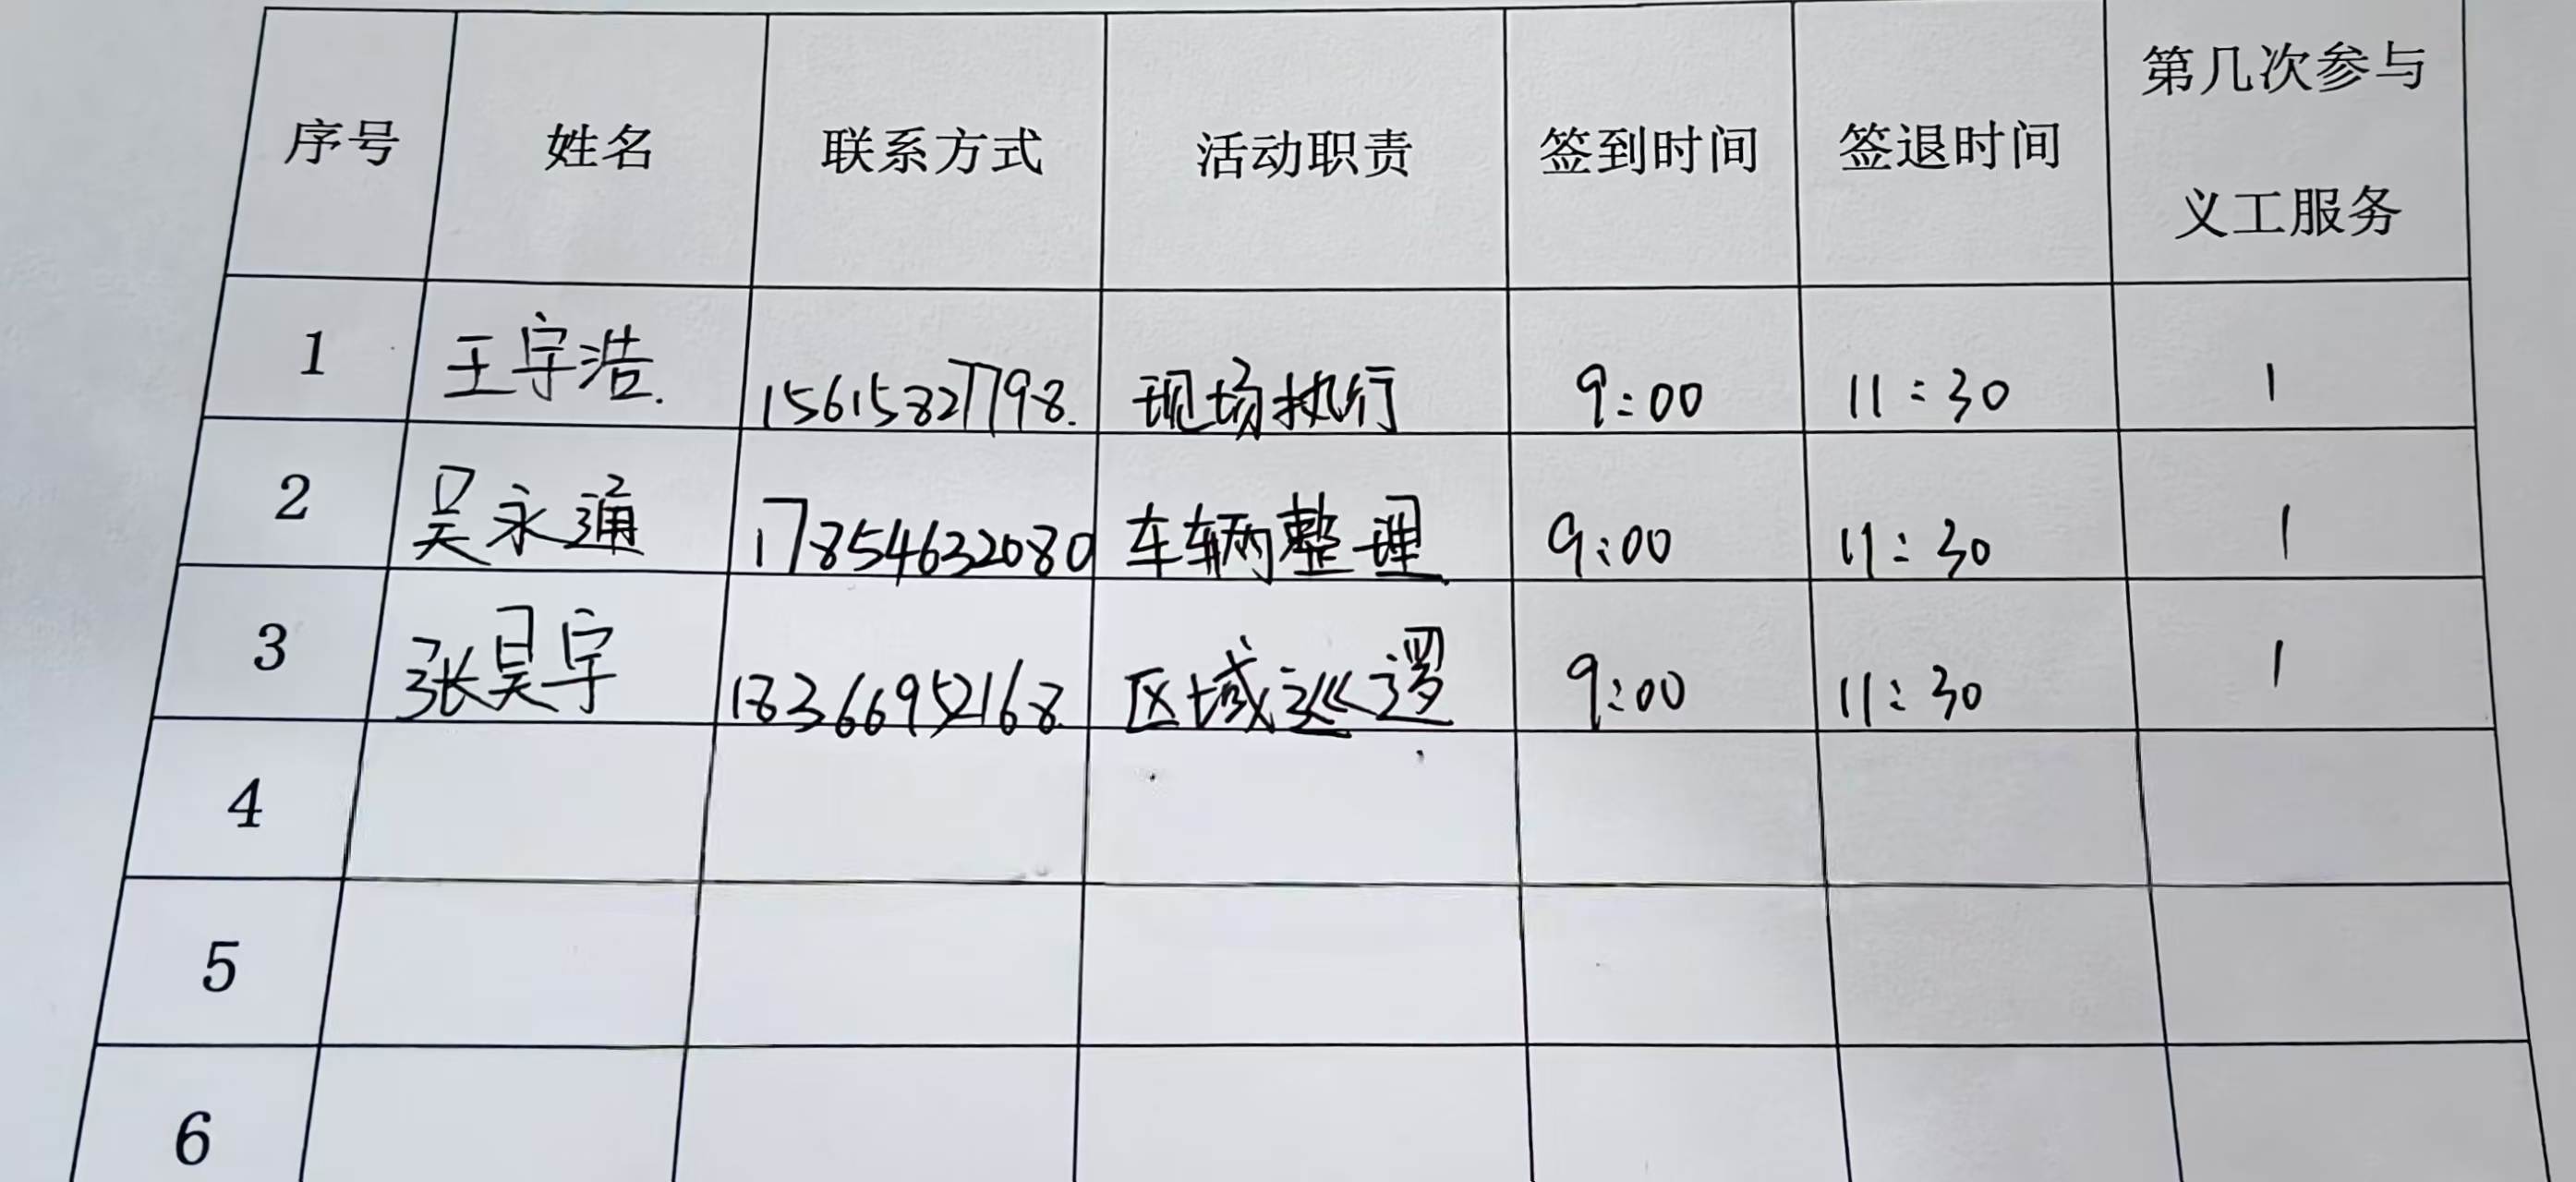 序号 姓名 联系方式 活动职责 签到时间 签退时间 第几次参与
义工服务
1 王宇浩. 15615827798. 现场执行 9:00 11:30 1
2 吴永通 17854632080 车辆整理 9:00 11:30 1
3 张昊宇 18366952168 区域巡逻 9:00 11:30 1
4
5
6